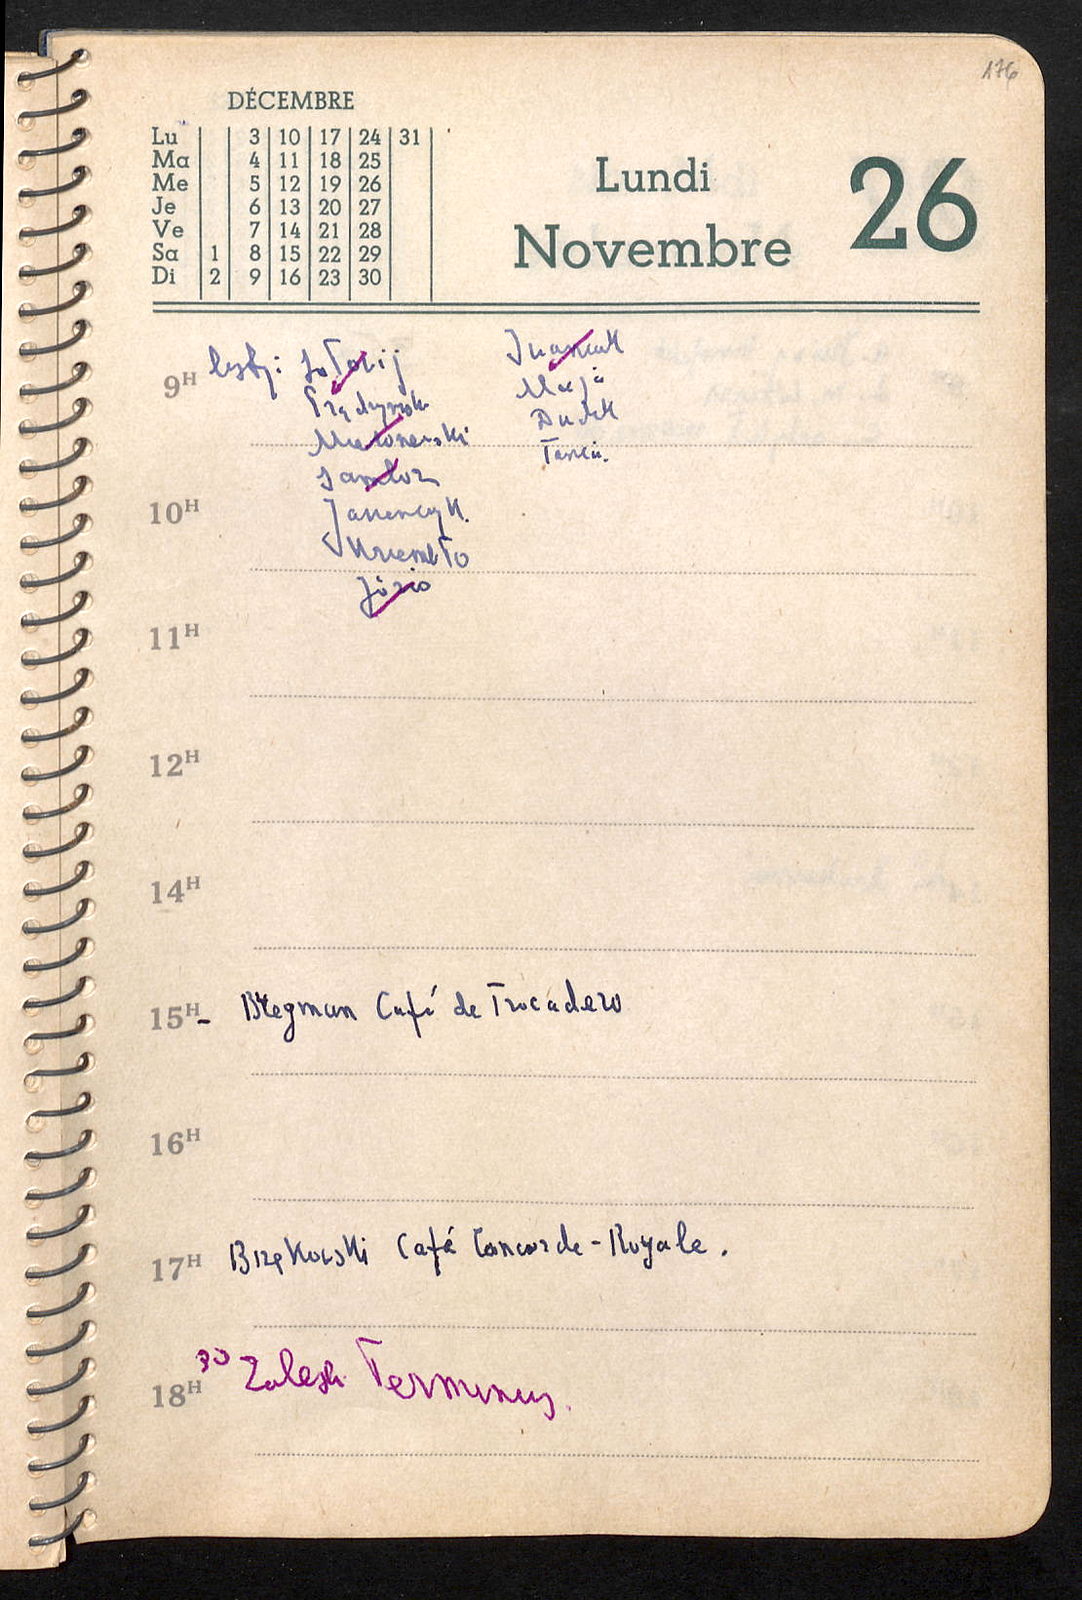 176
DÉCEMBRE
Lu 3 10 17 24 31
Ma 4 11 18 25
Me 5 12 19 26
Je 6 13 20 27
Ve 7 14 21 28
Sa 1 8 15 22 29
Di 2 9 16 23 30
Lundi 26
Novembre
9H listy:
Mieroszewski
Sambor
Janenczyk
Krzembło
Józio
Maja
Dudek
10H
11H
12H
14H
15H - Bregman Café de Trocadero
16H
17H Brzękowski Café Concorde-Royale.
18H 30 Zaleski Terminus.